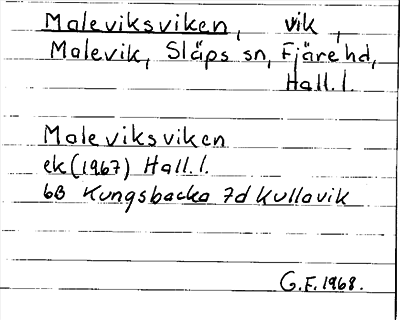 Maleviksviken, vik,
Malevik, Släps sn, Fjäre hd,
Hall. l.
Maleviksviken
ek (1967) Hall. l.
6B Kungsbacka 7d Kullavik
G.F. 1968.